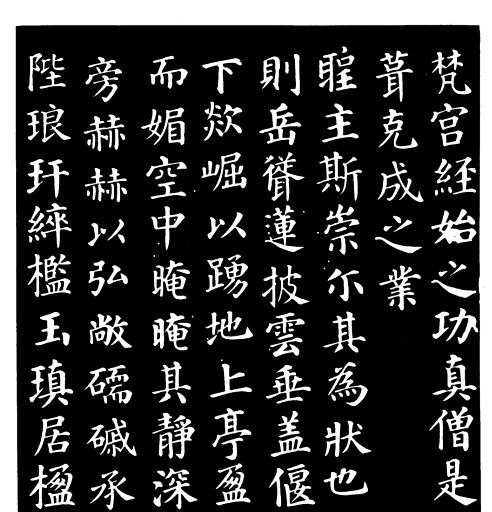 梵宫經始之功真僧是
葺克成之業
聖主斯崇尔其為狀也
則岳聳蓮披雲垂盖偃
下欻崛以踴地上亭盈
而媚空中晻晻其靜深
旁赫赫以弘敞礝磩承
陛琅玕綷檻玉瑱居楹